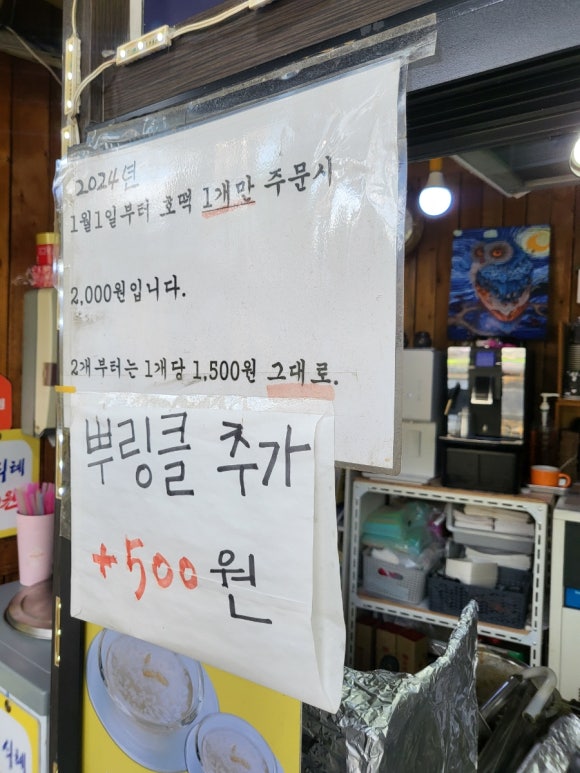 2024년
1월1일부터 호떡 1개만 주문시
2,000원입니다.
2개부터는 1개당 1,500원 그대로.
뿌링클 추가
+500원
식혜
원
식혜